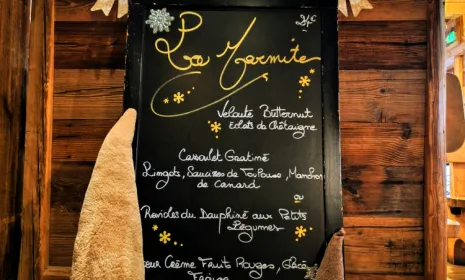 La Marmite
24€
Velouté Butternut
Eclats de Châtaigne
Cassoulet Gratiné
Lingots, Saucisses de Toulouse, Manchons
de Canard
ou
Ravioles du Dauphiné aux Petits
Légumes
Coeur Crème Fruits Rouges, Glacé